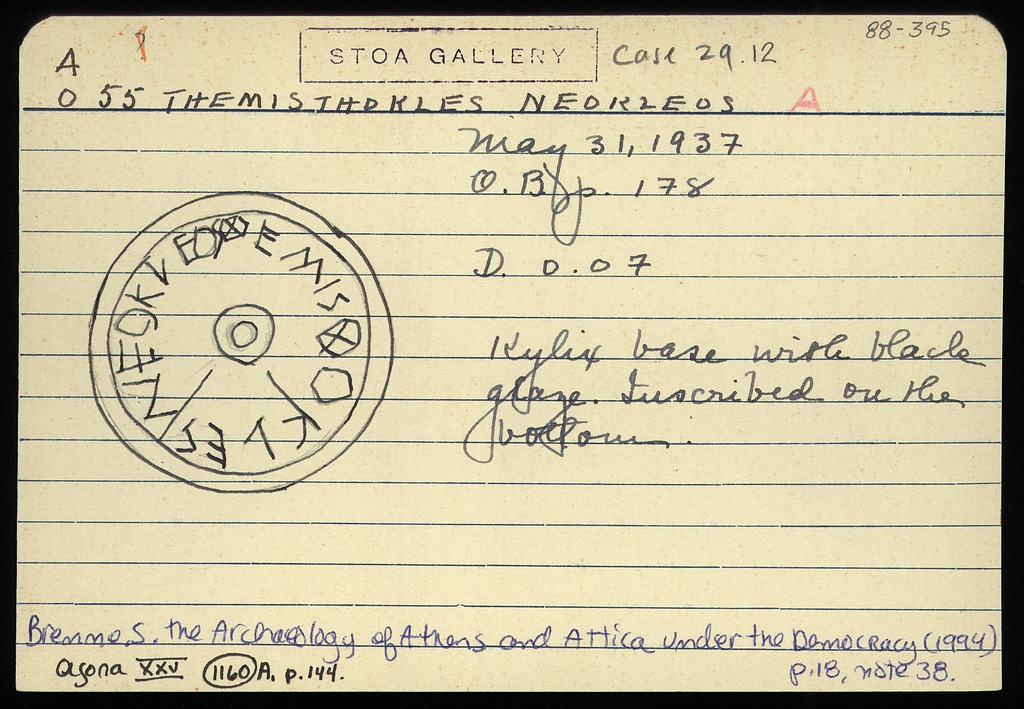 88-395
A
STOA GALLERY
Case 29.12
O 55 THEMISTHOKLES NEOKLEOS A
May 31, 1937
O.B. p. 178
D. 0.07
ⵝEMISⵝOKLES NEOKLEOS
Kylix base with black
glaze. Inscribed on the
bottom.
Bremme, S. the Archaeology of Athens and Attica under the Democracy (1994)
p.18, note 38.
Agora XXV 1160 A. p. 144.